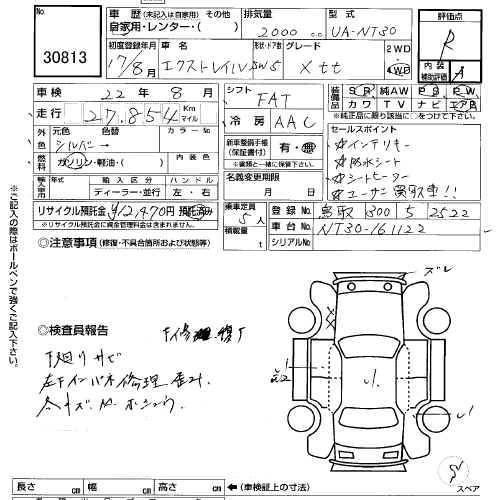 No.
30813
車歴 (未記入は自家用) その他
自家用・レンタカー・( )
排気量
2000 cc
型式
UA-NT30
評価点
R
初度登録年月
17/8月
車名
エクストレイル
形状・ドア数
5W5
グレード
Xtt
2WD
4WD
内装
補助評価
A
車検
22年 8月
走行
27,854 Km
マイル
シフト
FAT
冷房
AAC
装備品
SR 純AW PS PW
カワ TV ナビ エアB
※純正品に限り該当に○をつけて下さい。
外色
元色
色替
カラーNo
シルバー
燃料
ガソリン・軽油・( )
内装色
新車整備手帳
(保証書付)
有・無
※書類と一緒に保管して下さい。
セールスポイント
☆インテリキー
☆防水シート
☆シートヒーター
☆ユーザー買取車!!
輸入車
年式
輸入区分
ハンドル
ディーラー・並行
左・右
名義変更期限
月 日
リサイクル預託金 ¥12,470円 預託済み
※リサイクル預託金に資金管理料金は含まれません。
乗車定員
5人
積載量
t
登録No.
鳥取 300 5 2522
車台No.
NT30-161122
シリアルNo.
※ご記入の際はボールペンで強くご記入下さい。
◎注意事項 (修復・不具合箇所および状態等)
◎検査員報告
下廻リサビ
ズレ
スペア
長さ cm 幅 cm 高さ cm ←(車検証上の寸法)